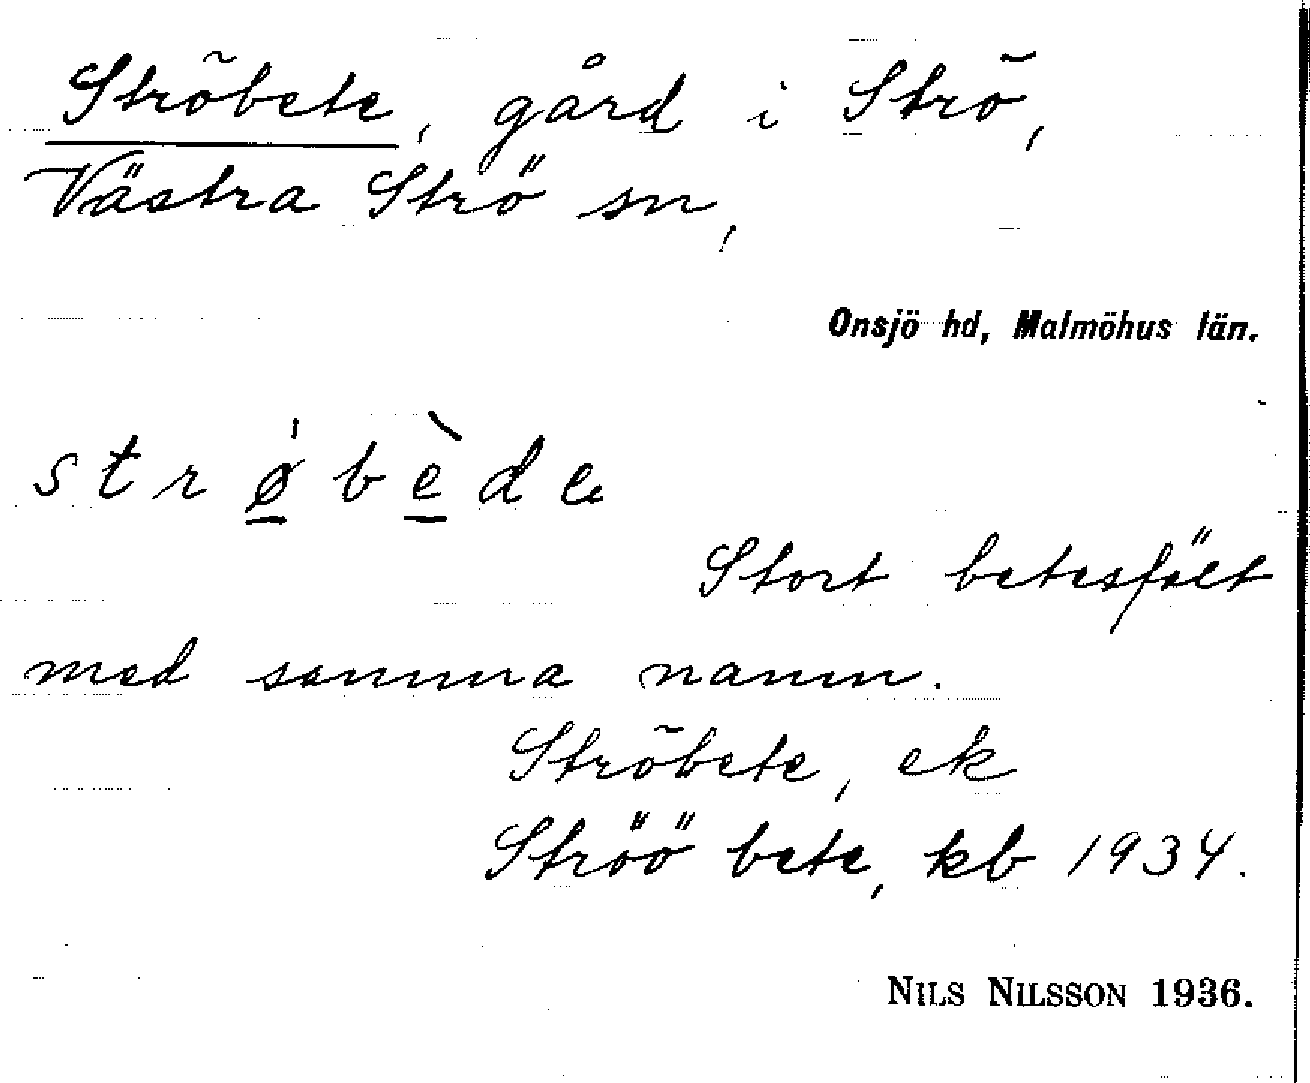 Strõbete, gård i Strõ,
Västra Strö sn,
Onsjö hd, Malmöhus län.
strǿ̱bè̱de
Stort betesfält
med samma namn.
Strõbete, ek
Ströö bete, kb 1934.
NILS NILSSON 1936.